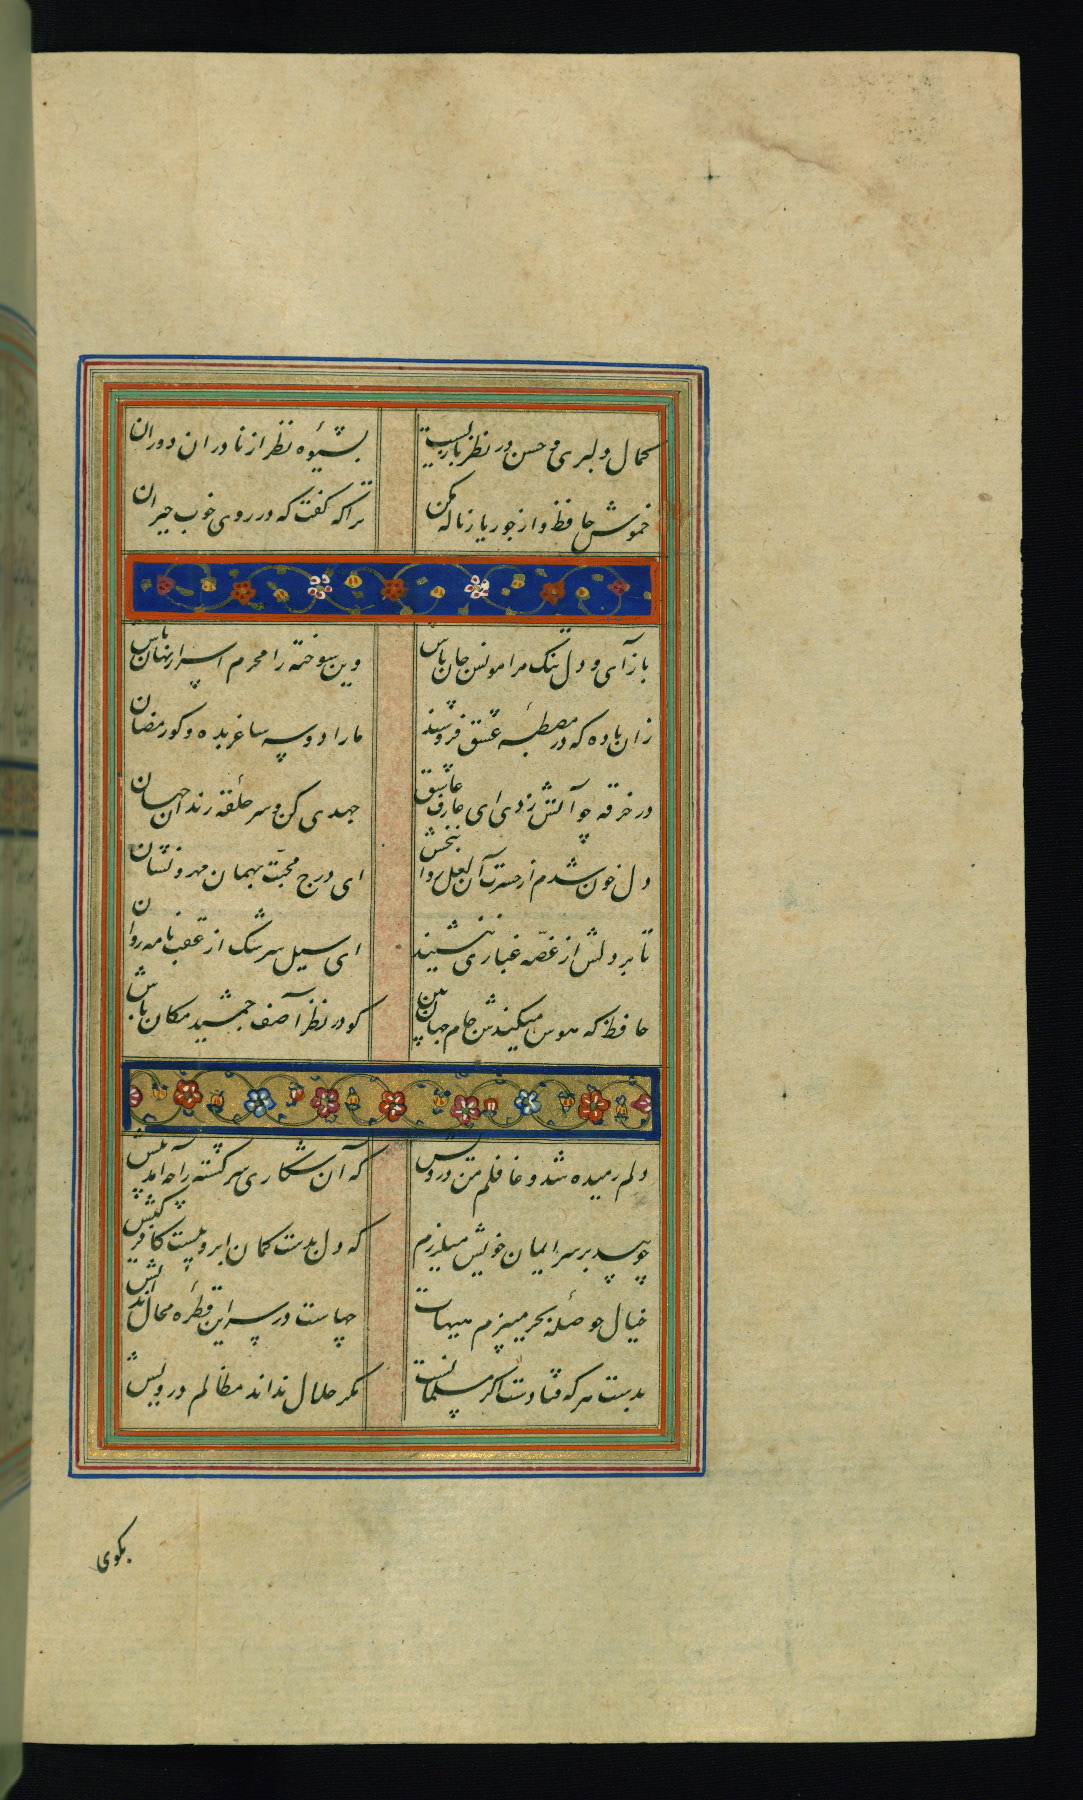 کمال دلبری و حسن در نظر بازیست
بشیوه نظر از نادران دوران
خموش حافظ و از جور یار ناله مکن
تراکه گفت که در روی خوب حیران
بازآی و دل تنک مرا مونس جان باش
وین سوخته را محرم اسرار نهان باش
زان باده که در مصطبه عشق فروشند
ما را دو سه ساغر بده و کو رمضان
در خرقه چو آتش زدی ای عارف عاشق
جهدی کن و سر حلقه رندان جهان
دل خون شدم از حسرت آن لعل روا بخش
ای درج محبت بهمان مهر و نشان
تا بر دلش از غصه غباری ننشیند
ای سیل سرشک از عقب نامه روان
حافظ که هوس میکندش جام جهان بین
کو در نظر آصف جمشید مکان باش
دلم رمیده شد و غافلم من درویش
که آن شکاری سرکشته را چه آمد پیش
چو بید بر سر ایمان خویش میلرزم
که دل بدست کمان ابرویست کافر کیش
خیال حوصله بحر میپزم هیهات
چهاست در سر این قطره محال اندیش
بدست هرکه فتادست اکر مسلمانست
مکر حلال نداند مظالم درویش
بکوی